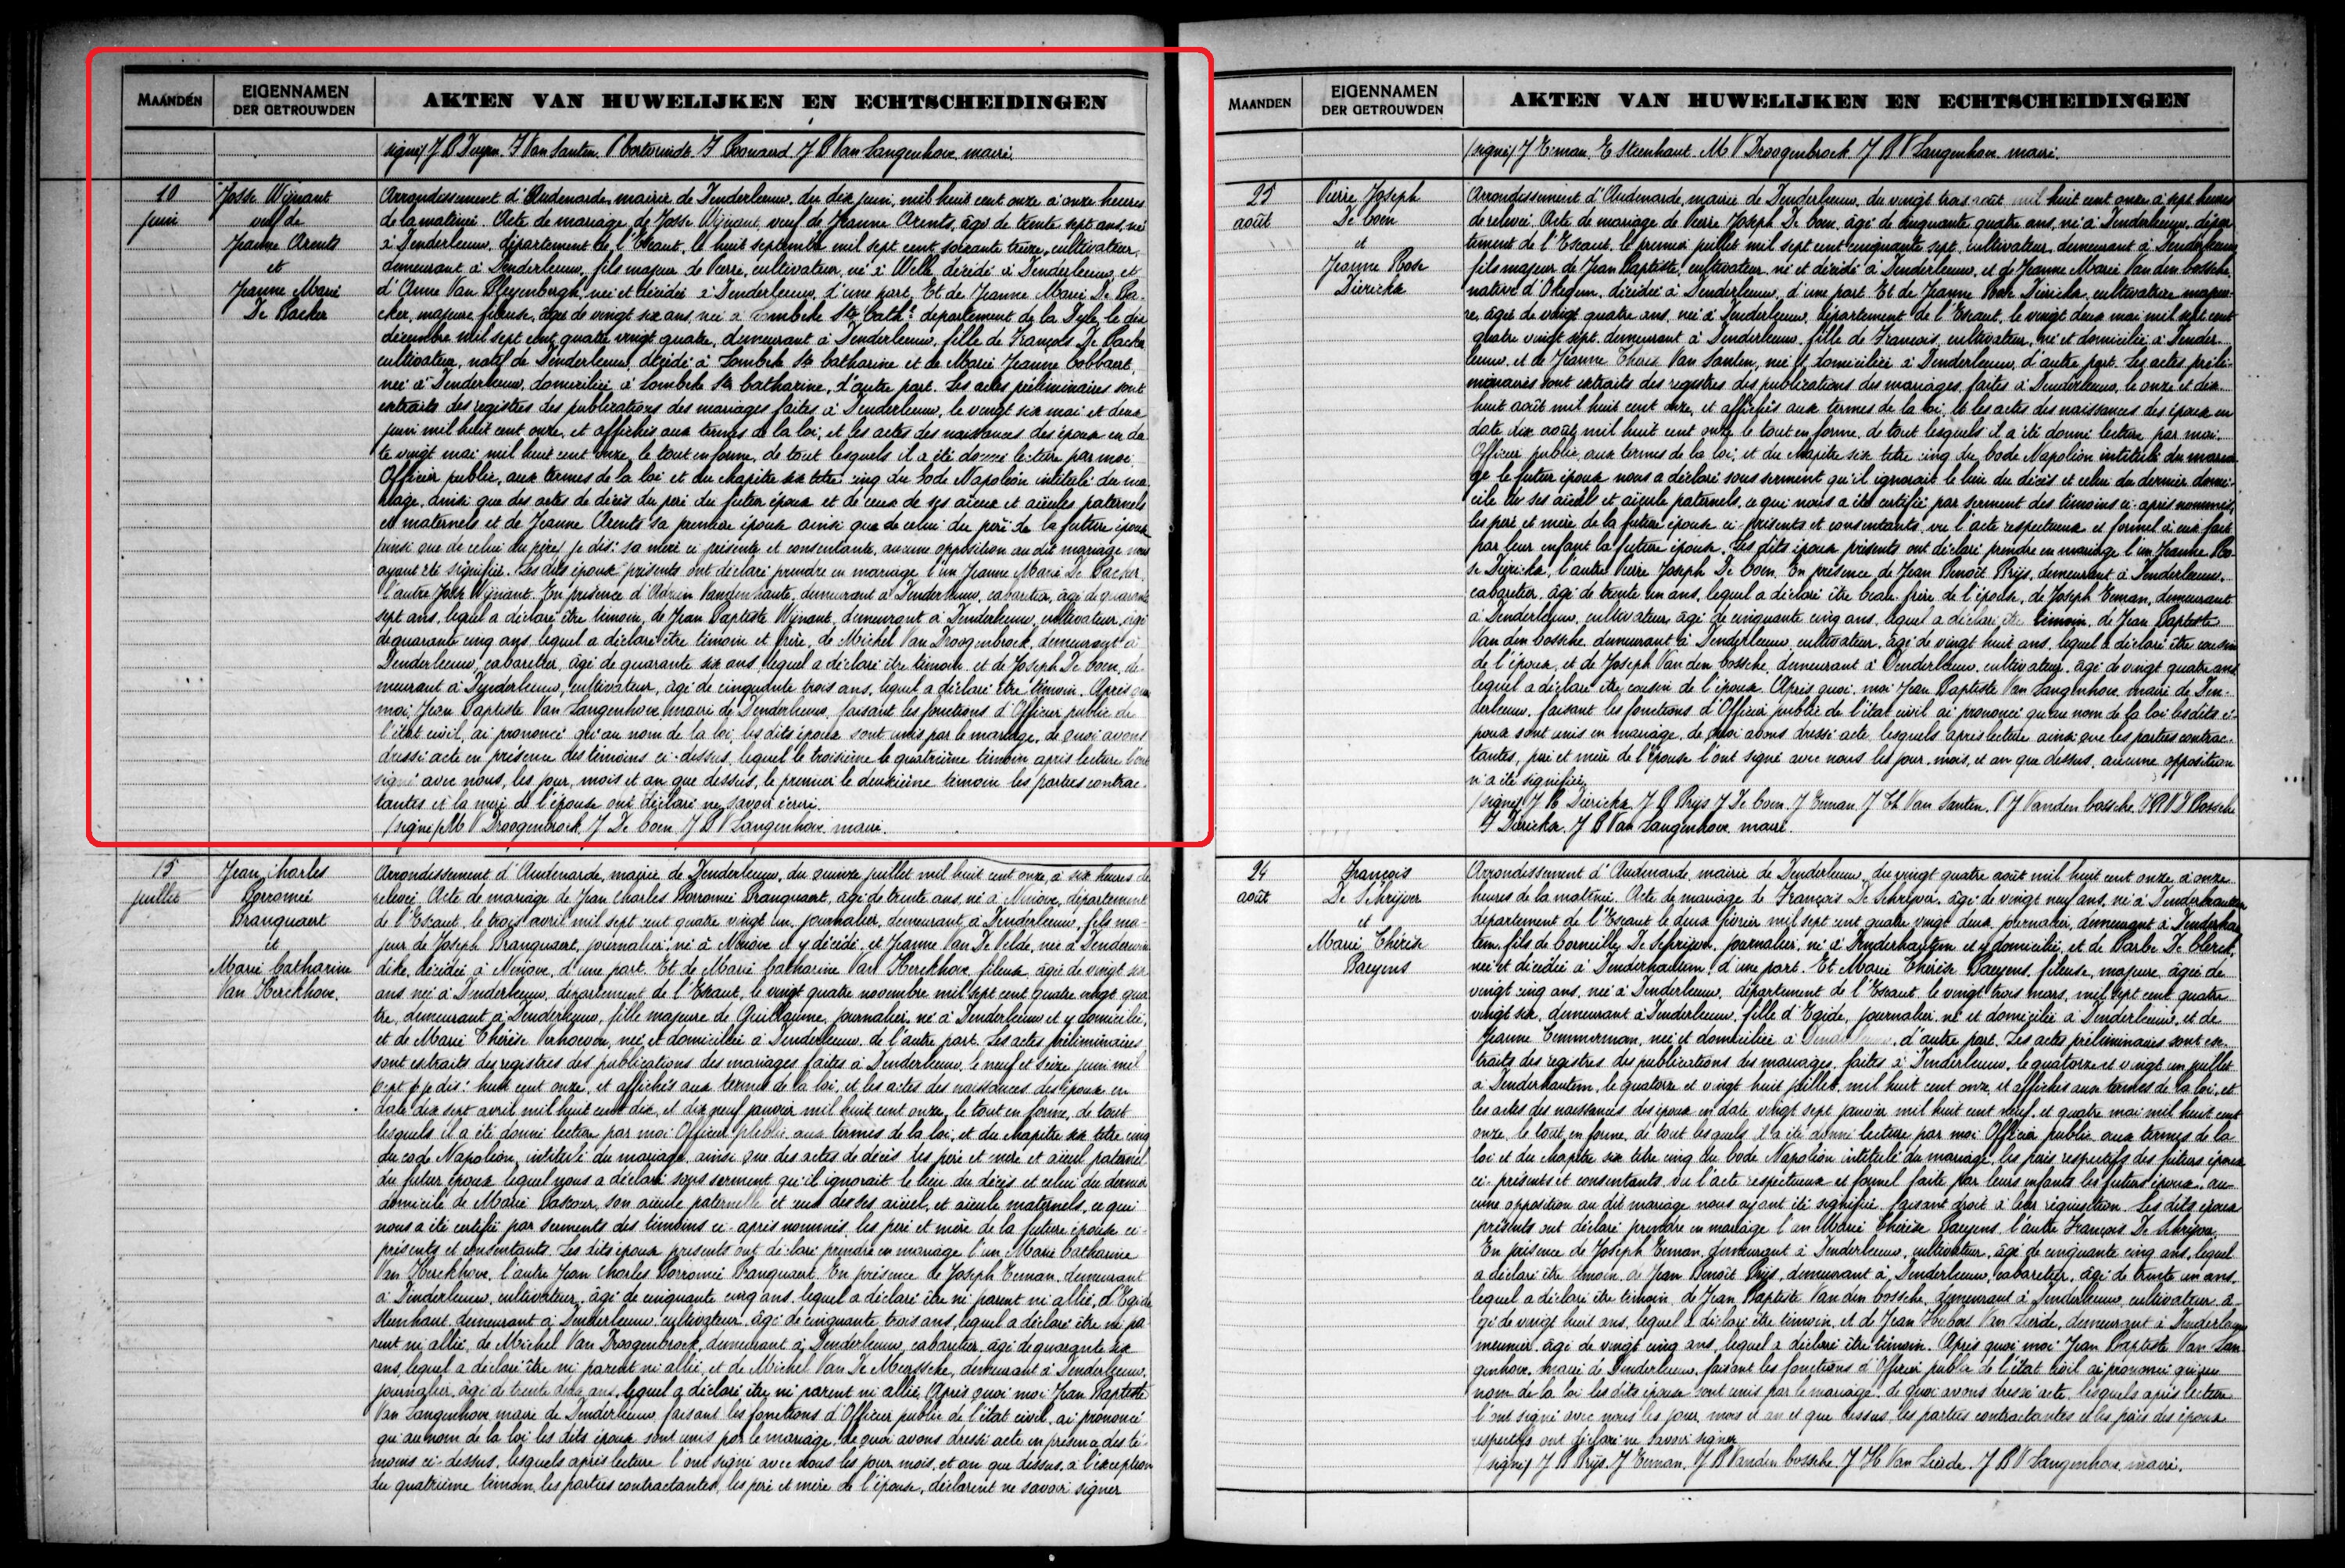 MAANDEN
EIGENNAMEN
DER GETROUWDEN
AKTEN VAN HUWELIJKEN EN ECHTSCHEIDINGEN
(signé) J B Van Langenhove maire.
10
juin
Josse Wijnant
veuf de
Jeanne Arents
et
Jeanne Marie
De Backer
Arrondissement d'Audenarde, mairie de Denderleeuw, du dix juin, mil huit cent onze à onze heures
de la matinée. Acte de mariage de Josse Wijnant, veuf de Jeanne Arents, âgé de trente sept ans, né
à Denderleeuw, département de l'Escaut, le huit septembre mil sept cent soixante treize, cultivateur,
demeurant à Denderleeuw, fils majeur de Pierre, cultivateur, né à Welle, décédé à Denderleeuw, et
d'Anne Van Bleyenbergh, née et décédée à Denderleeuw, d'une part. Et de Jeanne Marie De Ba-
cker, majeure, fileuse, âgée de vingt six ans, née à Lombeke Ste Cathe département de la Dyle, le dix
décembre mil sept cent quatre vingt quatre, demeurant à Denderleeuw, fille de François De Backer
cultivateur, natif de Denderleeuw, décédé à Lombeek Ste Catharine et de Marie Jeanne Cobbaert,
née à Denderleeuw, domiciliée à Lombeke Ste Catharine, d'autre part. Les actes préliminaires sont
extraits des registres des publications des mariages faites à Denderleeuw, le vingt six mai et deux
juin mil huit cent onze, et affichés aux termes de la loi, et les actes des naissances des époux en da-
te vingt mai mil huit cent onze, le tout en forme, de tout lesquels il a été donné lecture par moi
Officier public, aux termes de la loi et du chapitre six titre cinq du Code Napoléon intitulé du ma-
riage, ainsi que des actes de décès du père du futur époux et de ceux de ses aïeux et aïeules paternels
et maternels et de Jeanne Arents sa première épouse ainsi que de celui du père de la future épouse
(ainsi que de celui du père) je dis: sa mère ci présente et consentante, aucune opposition au dit mariage nous
ayant été signifiée. Les dits époux présents ont déclaré prendre en mariage l'un Jeanne Marie De Backer,
l'autre Josse Wijnant. En présence d'Adrien demeurant à Denderleeuw, cabaretier, âgé de quarante
sept ans, lequel a déclaré être témoin, de Jean Baptiste Wijnant, demeurant à Denderleeuw, cultivateur, âgé
de quarante cinq ans, lequel a déclaré être témoin et frère, de Michel Van Droogenbroeck, demeurant à
Denderleeuw, cabaretier, âgé de quarante six ans, lequel a déclaré être témoin, et de Joseph De Coen, de-
meurant à Denderleeuw, cultivateur, âgé de cinquante trois ans, lequel a déclaré être témoin. Après quoi
moi, Jean Baptiste Van Langenhove maire de Denderleeuw, faisant les fonctions d'Officier public de
l'état civil, ai prononcé qu'au nom de la loi, les dits époux sont unis par le mariage, de quoi avons
dressé acte en présence des témoins ci-dessus, lequel le troisième le quatrième témoin après lecture l'ont
signé avec nous, les jour, mois et an que dessus, le premier le deuxième témoin les parties contrac-
tantes et la mère de l'épouse ont déclaré ne savoir écrire.
(signé) M V Droogenbroeck, J De Coen, J B V Langenhove maire.
15
juillet
Jean Charles
Borromée
Branquaert
et
Marie Catharine
Van Herckhove.
Arrondissement d'Audenarde, mairie de Denderleeuw, du quinze juillet mil huit cent onze, à six heures de
relevée. Acte de mariage de Jean Charles Borromée Branquaert, âgé de trente ans, né à Ninove, département
de l'Escaut, le trois avril mil sept cent quatre vingt un, journalier, demeurant à Denderleeuw, fils ma-
jeur de Joseph Branquaert, journalier, né à Ninove et y décédé, et Jeanne Van De Velde, née à Denderwin-
dike, décédée à Ninove, d'une part. Et de Marie Catharine Van Herckhove, fileuse, âgée de vingt six
ans, née à Denderleeuw, département de l'Escaut, le vingt quatre novembre mil sept cent quatre vingt qua-
tre, demeurant à Denderleeuw, fille majeure de Guillaume, journalier, né à Denderleeuw et y domicilié,
et de Marie Thérèse Verhoeven, née et domiciliée à Denderleeuw, de l'autre part. Les actes préliminaires
sont extraits des registres des publications des mariages faites à Denderleeuw, le neuf et seize juin mil
sept (je dis: huit cent onze, et affichés aux termes de la loi, et les actes des naissances des époux en
date dix sept avril mil huit cent dix, et dix neuf janvier mil huit cent onze, le tout en forme, de tout
lesquels il a été donné lecture par moi Officier public, aux termes de la loi, et du chapitre six titre cinq
du code Napoléon, intitulé du mariage, ainsi que des actes de décès des père et mère et aïeul paternel
du futur époux lequel nous a déclaré sous serment qu'il ignorait le lieu du décès et celui du dernier
domicile de Marie son aïeule paternelle et ceux des ses aïeul, et aïeule maternels, ce qui
nous a été certifié par serments des témoins ci-après nommés, les père et mère de la future épouse ci-
présents et consentants. Les dits époux présents ont déclaré prendre en mariage l'un Marie Catharine
Van Herckhove, l'autre Jean Charles Borromée Branquaert. En présence de Joseph Eeman, demeurant
à Denderleeuw, cultivateur, âgé de cinquante cinq ans, lequel a déclaré être ni parent ni allié, d'Egide
Steenhaut, demeurant à Denderleeuw, cultivateur, âgé de cinquante trois ans, lequel a déclaré être ni pa-
rent ni allié, de Michel Van Droogenbroeck, demeurant à Denderleeuw, cabaretier, âgé de quarante six
ans, lequel a déclaré être ni parent ni allié, et de Michel Van De Meerssche, demeurant à Denderleeuw,
journalier, âgé de trente deux ans, lequel a déclaré être ni parent ni allié. Après quoi moi Jean Baptiste
Van Langenhove maire de Denderleeuw, faisant les fonctions d'Officier public de l'état civil, ai prononcé
qu'au nom de la loi les dits époux sont unis par le mariage, de quoi avons dressé acte en présence des té-
moins ci-dessus, lesquels après lecture l'ont signé avec nous les jour, mois, et an que dessus, à l'exception
du quatrième témoin, les parties contractantes, les père et mère de l'épouse, déclarent ne savoir signer
MAANDEN
EIGENNAMEN
DER GETROUWDEN
AKTEN VAN HUWELIJKEN EN ECHTSCHEIDINGEN
(signé) J Eeman, E Steenhaut M V Droogenbroeck J B V Langenhove maire.
25
août
Pierre Joseph
De Coen
et
Jeanne Rose
Dierickx
Arrondissement d'Audenarde, mairie de Denderleeuw, du vingt trois août mil huit cent onze à sept heures
de relevée. Acte de mariage de Pierre Joseph De Coen, âgé de cinquante quatre ans, né à Denderleeuw, dépar-
tement de l'Escaut, le premier juillet mil sept cent cinquante sept, cultivateur, demeurant à Denderleeuw
fils majeur de Jean Baptiste, cultivateur, né et décédé à Denderleeuw, et de Jeanne Marie Van den bossche,
native d'Okegem, décédée à Denderleeuw, d'une part. Et de Jeanne Rose Dierickx, cultivatrice, majeu-
re, âgée de vingt quatre ans, née à Denderleeuw, département de l'Escaut, le vingt deux mai mil sept cent
quatre vingt sept, demeurant à Denderleeuw, fille de François, cultivateur, né et domicilié à Dender-
leeuw, et de Jeanne Thérèse Van Santen, née et domiciliée à Denderleeuw, d'autre part. Les actes préli-
minaires sont extraits des registres des publications des mariages, faites à Denderleeuw, le onze et dix
huit août mil huit cent onze, et affichés aux termes de la loi, et les actes des naissances des époux en
date dix août mil huit cent onze, le tout en forme, de tout lesquels il a été donné lecture par moi
Officier public, aux termes de la loi, et du chapitre six titre cinq du Code Napoléon intitulé du maria-
ge, le futur époux nous a déclaré sous serment qu'il ignorait le lieu du décès et celui du dernier domi-
cile de ses aïeuls et aïeule paternels, ce qui nous a été certifié par serment des témoins ci-après nommés,
les père et mère de la future épouse ci-présents et consentants, vu l'acte respectueux et formel à eux fait
par leur enfant la future épouse. Les dits époux présents ont déclaré prendre en mariage l'un Jeanne Ro-
se Dierickx, l'autre Pierre Joseph De Coen. En présence de Jean Benoît Prijs, demeurant à Denderleeuw,
cabaretier, âgé de trente un ans, lequel a déclaré être beau-frère de l'épouse, de Joseph Eeman, demeurant
à Denderleeuw, cultivateur, âgé de cinquante cinq ans, lequel a déclaré être témoin, de Jean Baptiste
Van den bossche, demeurant à Denderleeuw, cultivateur, âgé de vingt huit ans, lequel a déclaré être cousin
de l'époux, et de Joseph Van den bossche, demeurant à Denderleeuw, cultivateur, âgé de vingt quatre ans
lequel a déclaré être cousin de l'époux. Après quoi, moi Jean Baptiste Van Langenhove maire de Den-
derleeuw, faisant les fonctions d'Officier public de l'état civil ai prononcé qu'au nom de la loi les dits é-
poux sont unis en mariage, de quoi avons dressé acte, lesquels après lecture ainsi que les parties contrac-
tantes, père et mère de l'épouse l'ont signé avec nous les jour, mois, et an que dessus, aucune opposition
n'a été signifiée,
(signé) J R Dierickx, J B Prijs J De Coen, J Eeman, J Th Van Santen, P J Vanden bossche, J B V D Bossche
F Dierickx, J B Van Langenhove maire.
24
août
François
De Schrijver
et
Marie Thérèse
Baeyens
Arrondissement d'Audenarde, mairie de Denderleeuw, du vingt quatre août mil huit cent onze à onze
heures de la matinée. Acte de mariage de François De Schrijver, âgé de vingt neuf ans, né à Denderhautem
département de l'Escaut le deux février mil sept cent quatre vingt deux, journalier, demeurant à Denderhau-
tem, fils de Corneille De Schrijver, journalier, né à Denderhautem et y domicilié, et de Barbe De Clerck,
née et décédée à Denderhautem, d'une part. Et Marie Thérèse Baeyens, fileuse, majeure, âgée de
vingt cinq ans, née à Denderleeuw, département de l'Escaut le vingt trois mars, mil sept cent quatre
vingt six, demeurant à Denderleeuw, fille d'Egide, journalier, né et domicilié à Denderleeuw, et de
Jeanne Temmerman, née et domiciliée à Denderleeuw, d'autre part. Les actes préliminaires sont ex-
traits des registres des publications des mariages, faites à Denderleeuw, le quatorze et vingt un juillet
à Denderhautem, le quatorze et vingt huit juillet, mil huit cent onze, et affichés aux termes de la loi, et
les actes des naissances des époux en date vingt sept janvier mil huit cent neuf, et quatre mai mil huit cent
onze, le tout en forme, de tout lesquels il a été donné lecture par moi Officier public aux termes de la
loi et du chapitre six titre cinq du Code Napoléon intitulé du mariage, les pères respectifs des futurs époux
ci-présents et consentants, vu l'acte respectueux et formel faite par leurs enfants les futurs époux, au-
cune opposition au dit mariage nous ayant été signifiée, faisant droit à leur réquisition. Les dits époux
présents ont déclaré prendre en mariage l'un Marie Thérèse Baeyens, l'autre François De Schrijver,
En présence de Joseph Eeman, demeurant à Denderleeuw, cultivateur, âgé de cinquante cinq ans, lequel
a déclaré être témoin, de Jean Benoît Prijs, demeurant à Denderleeuw, cabaretier, âgé de trente un ans,
lequel a déclaré être témoin, de Jean Baptiste Van den bossche, demeurant à Denderleeuw, cultivateur, â-
gé de vingt huit ans, lequel a déclaré être témoin, et de Jean Hubert Van Lierde, demeurant à Denderleeuw
meunier, âgé de vingt cinq ans, lequel a déclaré être témoin. Après quoi moi Jean Baptiste Van Lan-
genhove, maire de Denderleeuw, faisant les fonctions d'Officier public de l'état civil ai prononcé qu'au
nom de la loi les dits époux sont unis par le mariage, de quoi avons dressé acte, lesquels après lecture
l'ont signé avec nous les jour, mois et an et que dessus, les parties contractantes et les pères des époux
respectifs ont déclaré ne savoir signer
(signé) J B Prijs, J Eeman, J B Vanden bossche, J H Van Lierde, J B V Langenhove, maire.